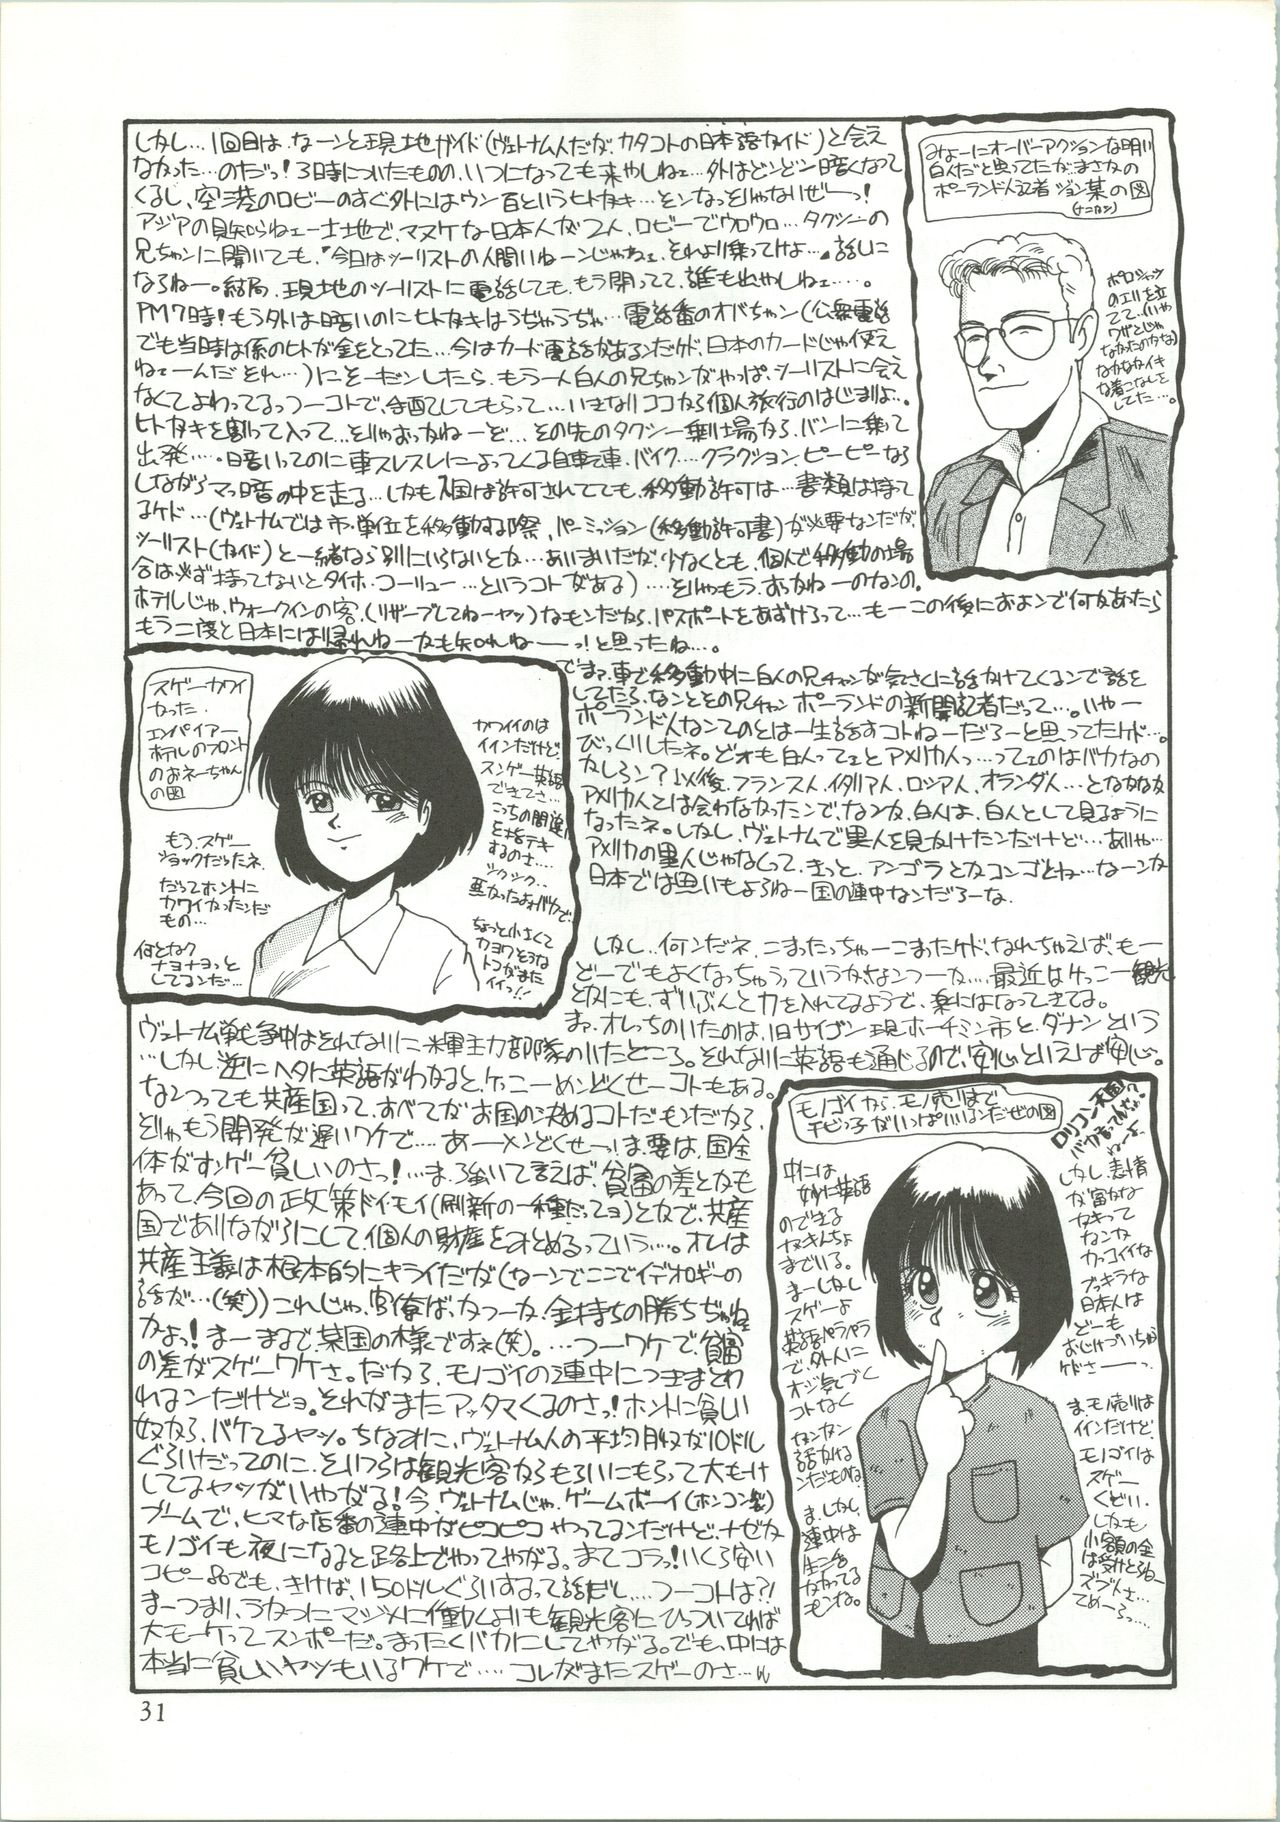 しかし…1回目は、なーンと現地ガイド(ヴェトナム人だが、カタコトの日本語ガイド)と会え
なかった…のだっ!3時についたものの、いつになっても来やしねェ…外はどんどン暗くなって
くるし、空港のロビーのすぐ外にはウン百というヒトガキ…
アジアの見知らねェ一土地で、マヌケな日本人が2人、ロビーでウロウロ…タクシーの
兄ちゃンに聞いても、『今日はツーリストの人間いねーンじゃねェ、それより乗ってけよ…』話しに
ならねー。結局、現地のツーリストに電話しても、もう閉ってて、誰も出やしねェ….
PM7時!もう外は暗いのにヒトガキはうぢゃうぢゃ…電話番のオバちゃン(公衆電話
でも当時は係のヒトが金をとってた…今はカード電話があるンだケド、日本のカードじゃ使え
ねェーんだそれ…)にそーだンしたら、もう一人白人の兄ちゃンがやっぱ、ツーリストに会え
なくてよわってるっつーコトで、手配してもらって…いきなりココから個人旅行のはじまりよ…。
ヒトガキを割って入って…そりゃおっかねーど…その先のタクシー乗り場から、バンに乗って
出発….暗いってのに車スレスレによってくる自転車、バイク…クラクション、ピーピーなら
しながらマっ暗の中を走る…しかも入国は許可されてても、移動許可は…書類は持って
るケド…(ヴェトナムでは市単位を移動する際、パーミッション(移動許可書)が必要なンだが、
ツーリスト(ガイド)と一緒なら別にいらないとか…あいまいだが、少なくとも、個人で移動の場
合は必ず持ってないとタイホ、コーリュー…というコトがある)…そりゃもう、おっかねーのなンの。
ホテルじゃ、ウォークインの客、(リザーブしてねーヤツ)なもンだから、パスポートをあずけろって…もーこの後におよンで何かあったら
もう二度と日本には帰れねーかも知れねーーっ!と思ったね…。
みょーにオーバーアクションな明い
白人だと思ってたが、まさかの
ポーランド人記者 ジョン某の図
ポロシャツ
のエリを立
てて…(いや
ワザとじゃ
なかたのかな)
なかなかイキ
な着こなしを
してた…。
でまァ、車で移動中に白人の兄チャンが気さくに話かけてくるンで話を
してたら、なんとその兄チャン ポーランドの新聞記者だって…。いやー
ポーランド人なンてのとは一生話すコトねーだろーと思ってたけド…。
びっくりしたネ。どォも白人ってェとアメリカ人っ…ってェのはバカなの
かしらン?以後、フランス人、イタリア人、ロシア人、オランダ人…となかなか
アメリカ人とは会わなかったンで、なンか、白人は、白人として見るように
なったネ。しかし、ヴェトナムで黒人を見かけたンだけど…ありゃ…
アメリカの黒人じゃなくって、きっと、アンゴラとかコンゴとね…なーンか
日本では思いもよらねー国の連中なンだろーな.
スゲーカワイ
かった.
エンパイアー
ホテルのフロント
のおネーちゃん
の図
カワイイのは
イインだけど
スンゲー英語
できてさ…
こっちの間違い
を指テキ
するのさ….
シクシク..
悪かったよォバカで.
ちょっと小さくて
カヨワそうな
トコがまた
イイっ!!
もう、スゲー
ショックだったネ.
だってホントに
カワイかったンだ
もの…
何となく
ナヨナヨっと
してるンだ…
しかし..何ンだネ、こまったっちゃーこまったケド、なれちゃえば、もー
どーでもよくなっちゃうっていうかなンつーか…最近はけっこー観光
とかにも、ずいぶんと力を入れてるようで、楽にはなってきてるよ。
まァ、オレっちのいたのは、旧サイゴン、現ホーチミン市と、ダナンという
ヴェトナム戦争中はそれなりに米軍主力部隊のいたところ。それなりに英語も通じるので、安心といえば安心。
…しかし逆にヘタに英語がわかると、けっこーめんどくせーコトもある。
なンつっても共産国って、すべてがお国の決めるコトだモンだから
そりゃもう開発が遅いワケで…あーーメンどくせーっ!ま、要は、国全
体がすンゲー貧しいのさっ!…ま、強いて言えば、貧富の差とかも
あって、今回の政策ドイモイ(刷新の一種だってョ)とかで、共産
国でありながらにして、個人の財産をみとめるっていう…。オレは
共産主義は根本的にキライだが(なーンでここでイデオロギーの
話が…(笑))これじゃ、官僚ば、かつーか、金持ちの勝ちぢゃねェ
かよっ!まーまるで、某国の様ですネ(笑)。…つーワケで、貧富
の差がスゲーワケさ。だから、モノゴイの連中につきまとわ
れるンだけどョ。それがまたアッタマくるのさっ!ホントに貧しい
奴から、バケてるヤツ。ちなみに、ヴェトナム人の平均月収が10ドル
ぐらいだってのに、そいつらは観光客からもらいにもらって大もーけ
してるヤツがいやがる!今、ヴェトナムじゃ、ゲームボーイ(ホンコン製)
ブームで、ヒマな店番の連中がピコピコやってるンだけど、ナゼか
モノゴイも夜になると路上でやってやがる。まてコラっ!いくら安い
コピー品でも、きけば、150ドルぐらいするって話だし…つーコトは?!
まーつまり、うかつにマジメに働くよりも観光客にひっついてれば
大モーケってスンポーだ。まったくバカにしてやがる。でも、中には
本当に貧しいヤツもいるワケで….コレがまたスゲーのさ…
モノゴイから、モノ売りまで
チビっ子がいっぱいいるンだぜの図
ロリコン天国?
バカ言ってんじゃ
ねーよ
中には
妙に英語
のできる
ガキんちょ
までいる。
まーしかし
スゲーよ
英語ペラペラ
で、外人に
オジ気づく
コトなく
ガンガン
話かける
ンだものね.
ま、しかし、
連中は
生活
かかってる
モンな。
しかし、表情
が富かな
ガキって
なンか
カッコイイな
ブッキラな
日本人は
どーも
おじけづいちゃう
ケドさーーっ.
ま、モノ売りは
イインだけど、
モノゴイは
スゲー
くどい.
しかも
小額の金
は受けとらねー
ズブしさ…
てめーらっ…
31